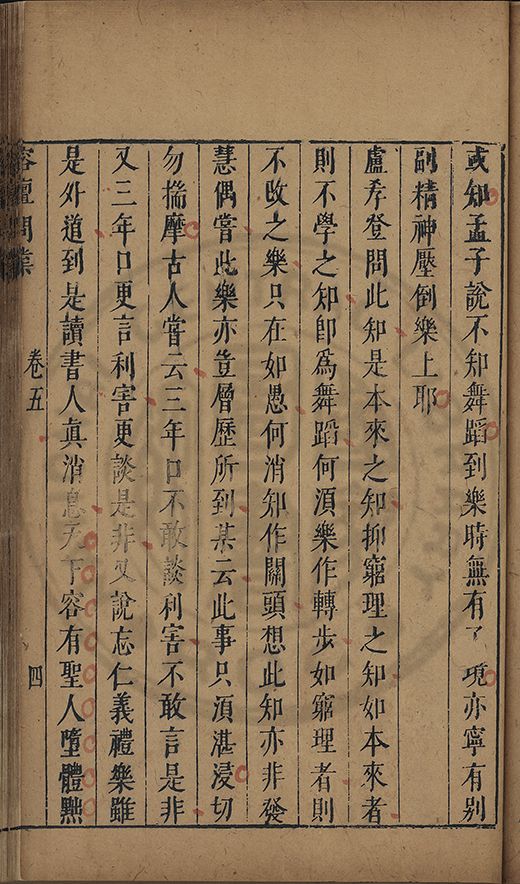 或知孟子說不知舞蹈到樂時無有了境亦寧有別
副精神壓倒樂上耶
盧孝登問此知是本來之知抑窮理之知如本來者
則不學之知即為舞蹈何須樂作轉步如窮理者則
不改之樂只在如愚何消知作關頭想此知亦非發
慧偶嘗此樂亦豈層歷所到某云此事只須湛浸切
勿揣摩古人嘗云三年口不敢談利害不敢言是非
又三年口更言利害更談是非又說忘仁義禮樂雖
是外道到是讀書人真消息天下容有聖人墮體黜
榕壇問業
卷五
四